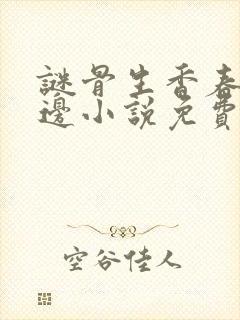 謎骨生香春
邊小說免費
空谷佳人